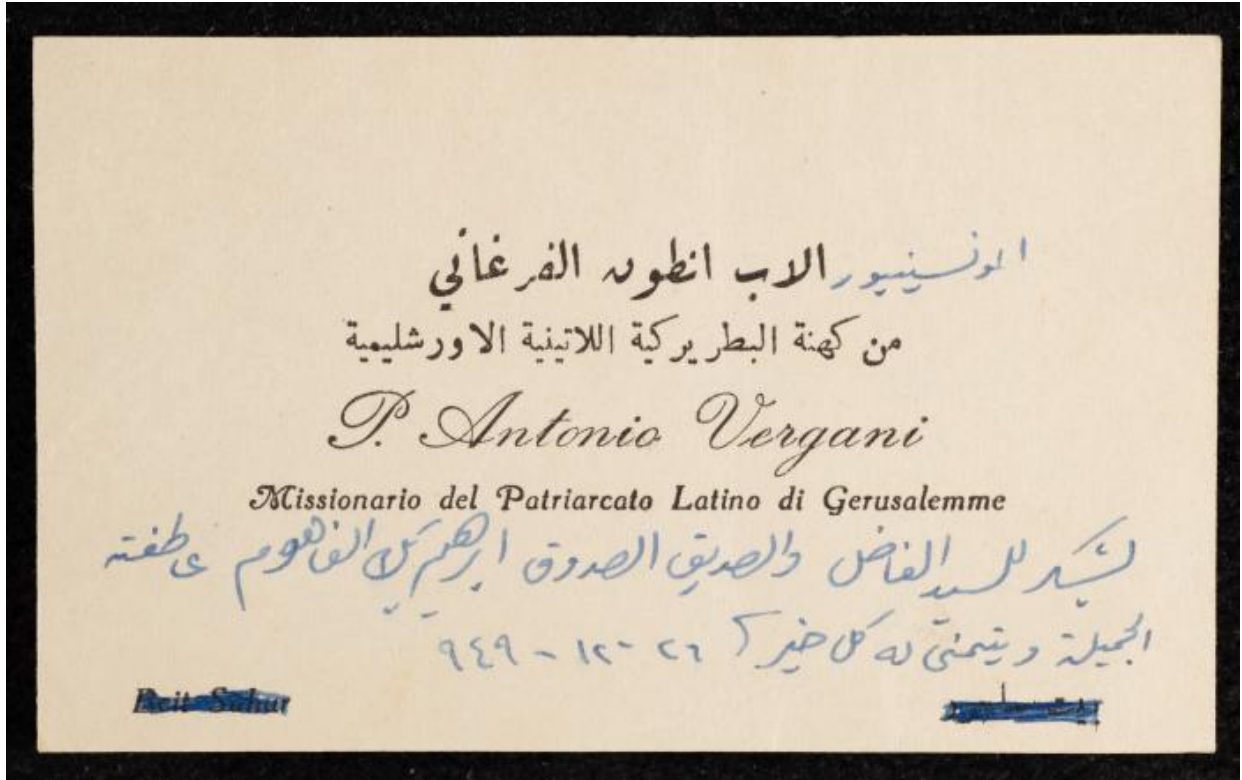 المونسنيور الاب انطون الفرغاني
من كهنة البطريركية اللاتينية الاورشليمية
P. Antonio Vergani
Missionario del Patriarcato Latino di Gerusalemme
يشكر للسيد الفاضل والصديق الصدوق ابرهيم بك الفاهوم عاطفته
الجميلة ويتمنى له كل خير ٢٦ - ١٢ - ٩٤٩
Beit Sahur